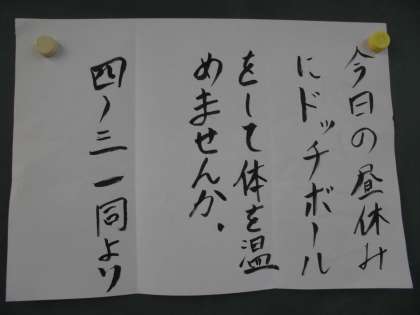 今日の昼休み
にドッチボール
をして体を温
めませんか。
四ノ三一同より